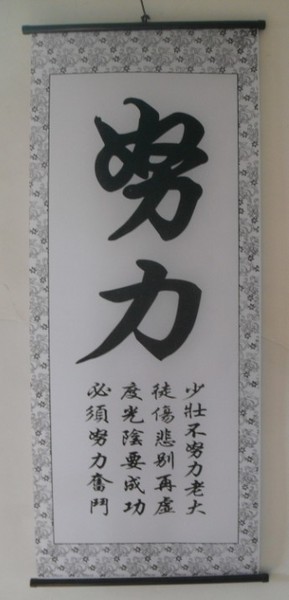 努力
少壯不努力老大
徒傷悲别再虛
度光陰要成功
必須努力奮鬥